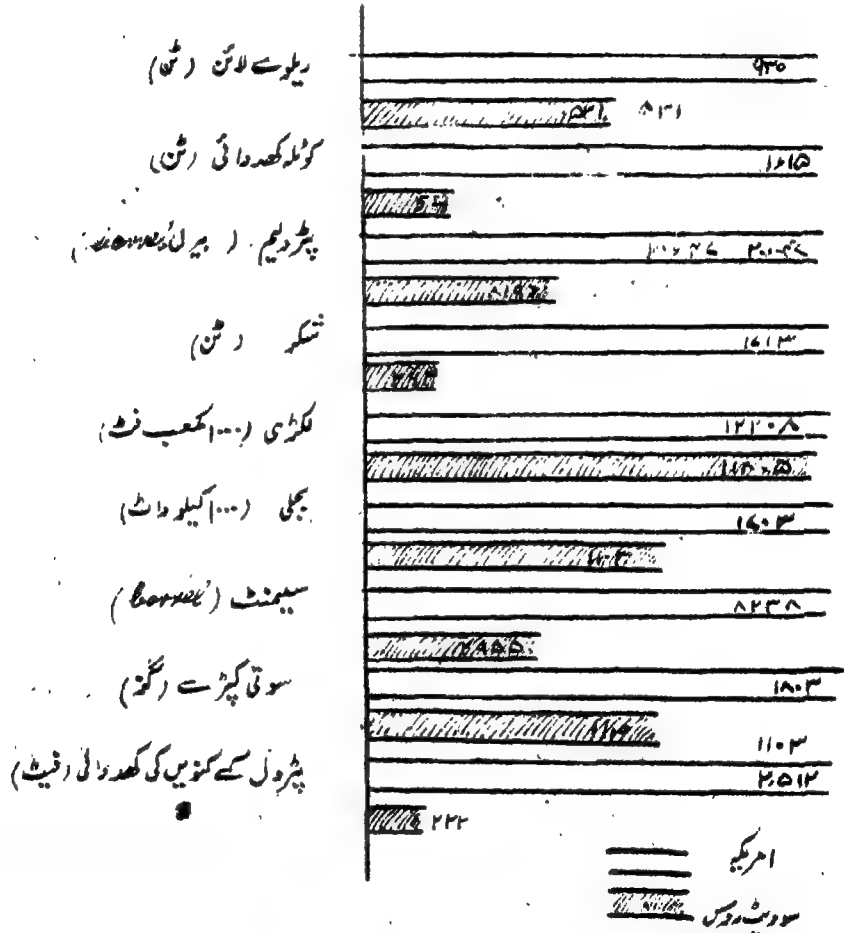 ریلوے لائن (ٹن)
۹۳۰
۵۳۱ ۵۳۱
کوئلہ کھدوائی (ٹن)
پٹرولیم ( بیرل
شکر (ٹن)
۱۶۱۳
لکڑی (۱۰۰۰ مکعب فٹ)
۱۲۲۰۸
بجلی (۱۰۰۰ کیلو واٹ)
۱۶۰۳
سیمنٹ (barrel)
۸۲۳۸
۲۸۵۵
سوتی کپڑے (گز)
۱۸۰۳
۱۱۰۳
پٹرول کے کنویں کی کھدوائی (فیٹ)
۲,۵۱۲
۲۲۲
امریکہ
سوویٹ روس